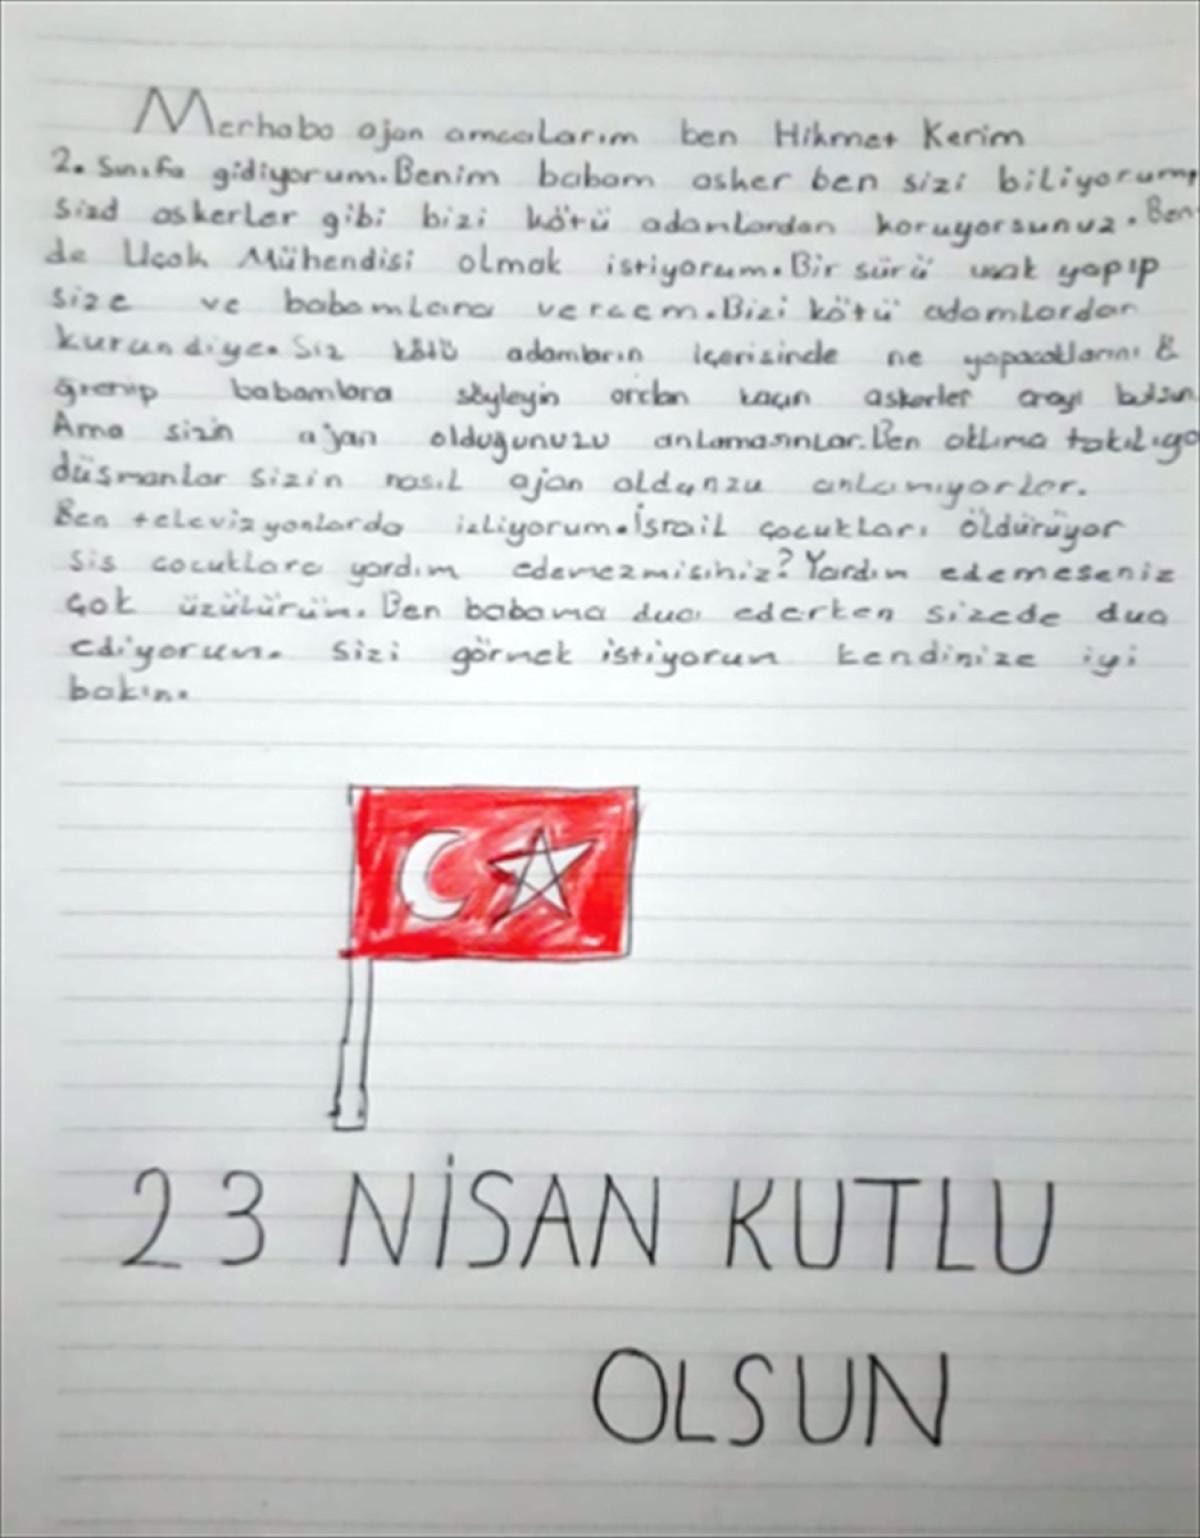 Merhaba ajan amcalarım ben Hikmet Kerim
2. sınıfa gidiyorum. Benim babam asker ben sizi biliyorum,
Sizd askerler gibi bizi kötü adamlardan koruyorsunuz. Ben
de Uçak Mühendisi olmak istiyorum. Bir sürü uçak yapıp
size ve babamlara vercem. Bizi kötü adamlardan
kurundiye. Siz kötü adamların içerisinde ne yapacaklarını ö
ğrenip babamlara söyleyin ordan kaçın askerler orayı bulsun
Ama sizin ajan olduğunuzu anlamasınlar. Ben aklıma takılıyo
düsmanlar sizin nasıl ajan oldunzu anlamıyorlar.
Ben televizyonlarda izliyorum. İsrail çocukları öldürüyor
sis cocuklara yardım edemezmisiniz? Yardım edemeseniz
çok üzülürüm. Ben babama dua ederken sizede dua
ediyorum. Sizi görmek istiyorun kendinize iyi
bakın.
23 NİSAN KUTLU
OLSUN